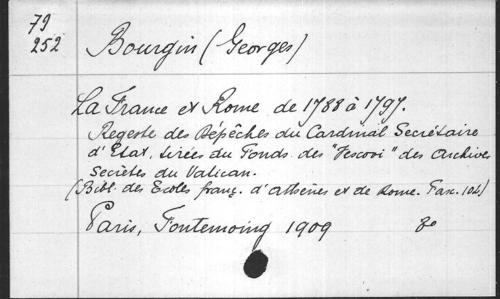 79
252
Bourgin (Georges)
La France et Rome de 1788 à 1797.
Regeste des Dépêches du Cardinal Secrétaire
d'Etat, tirées du Fonds des "Vescovi" des Archives
Secrètes du Vatican.
(Bibl. des Ecoles franç. d'Athènes et de Rome. Fasc. 102)
Paris, Fontemoing 1909 8o